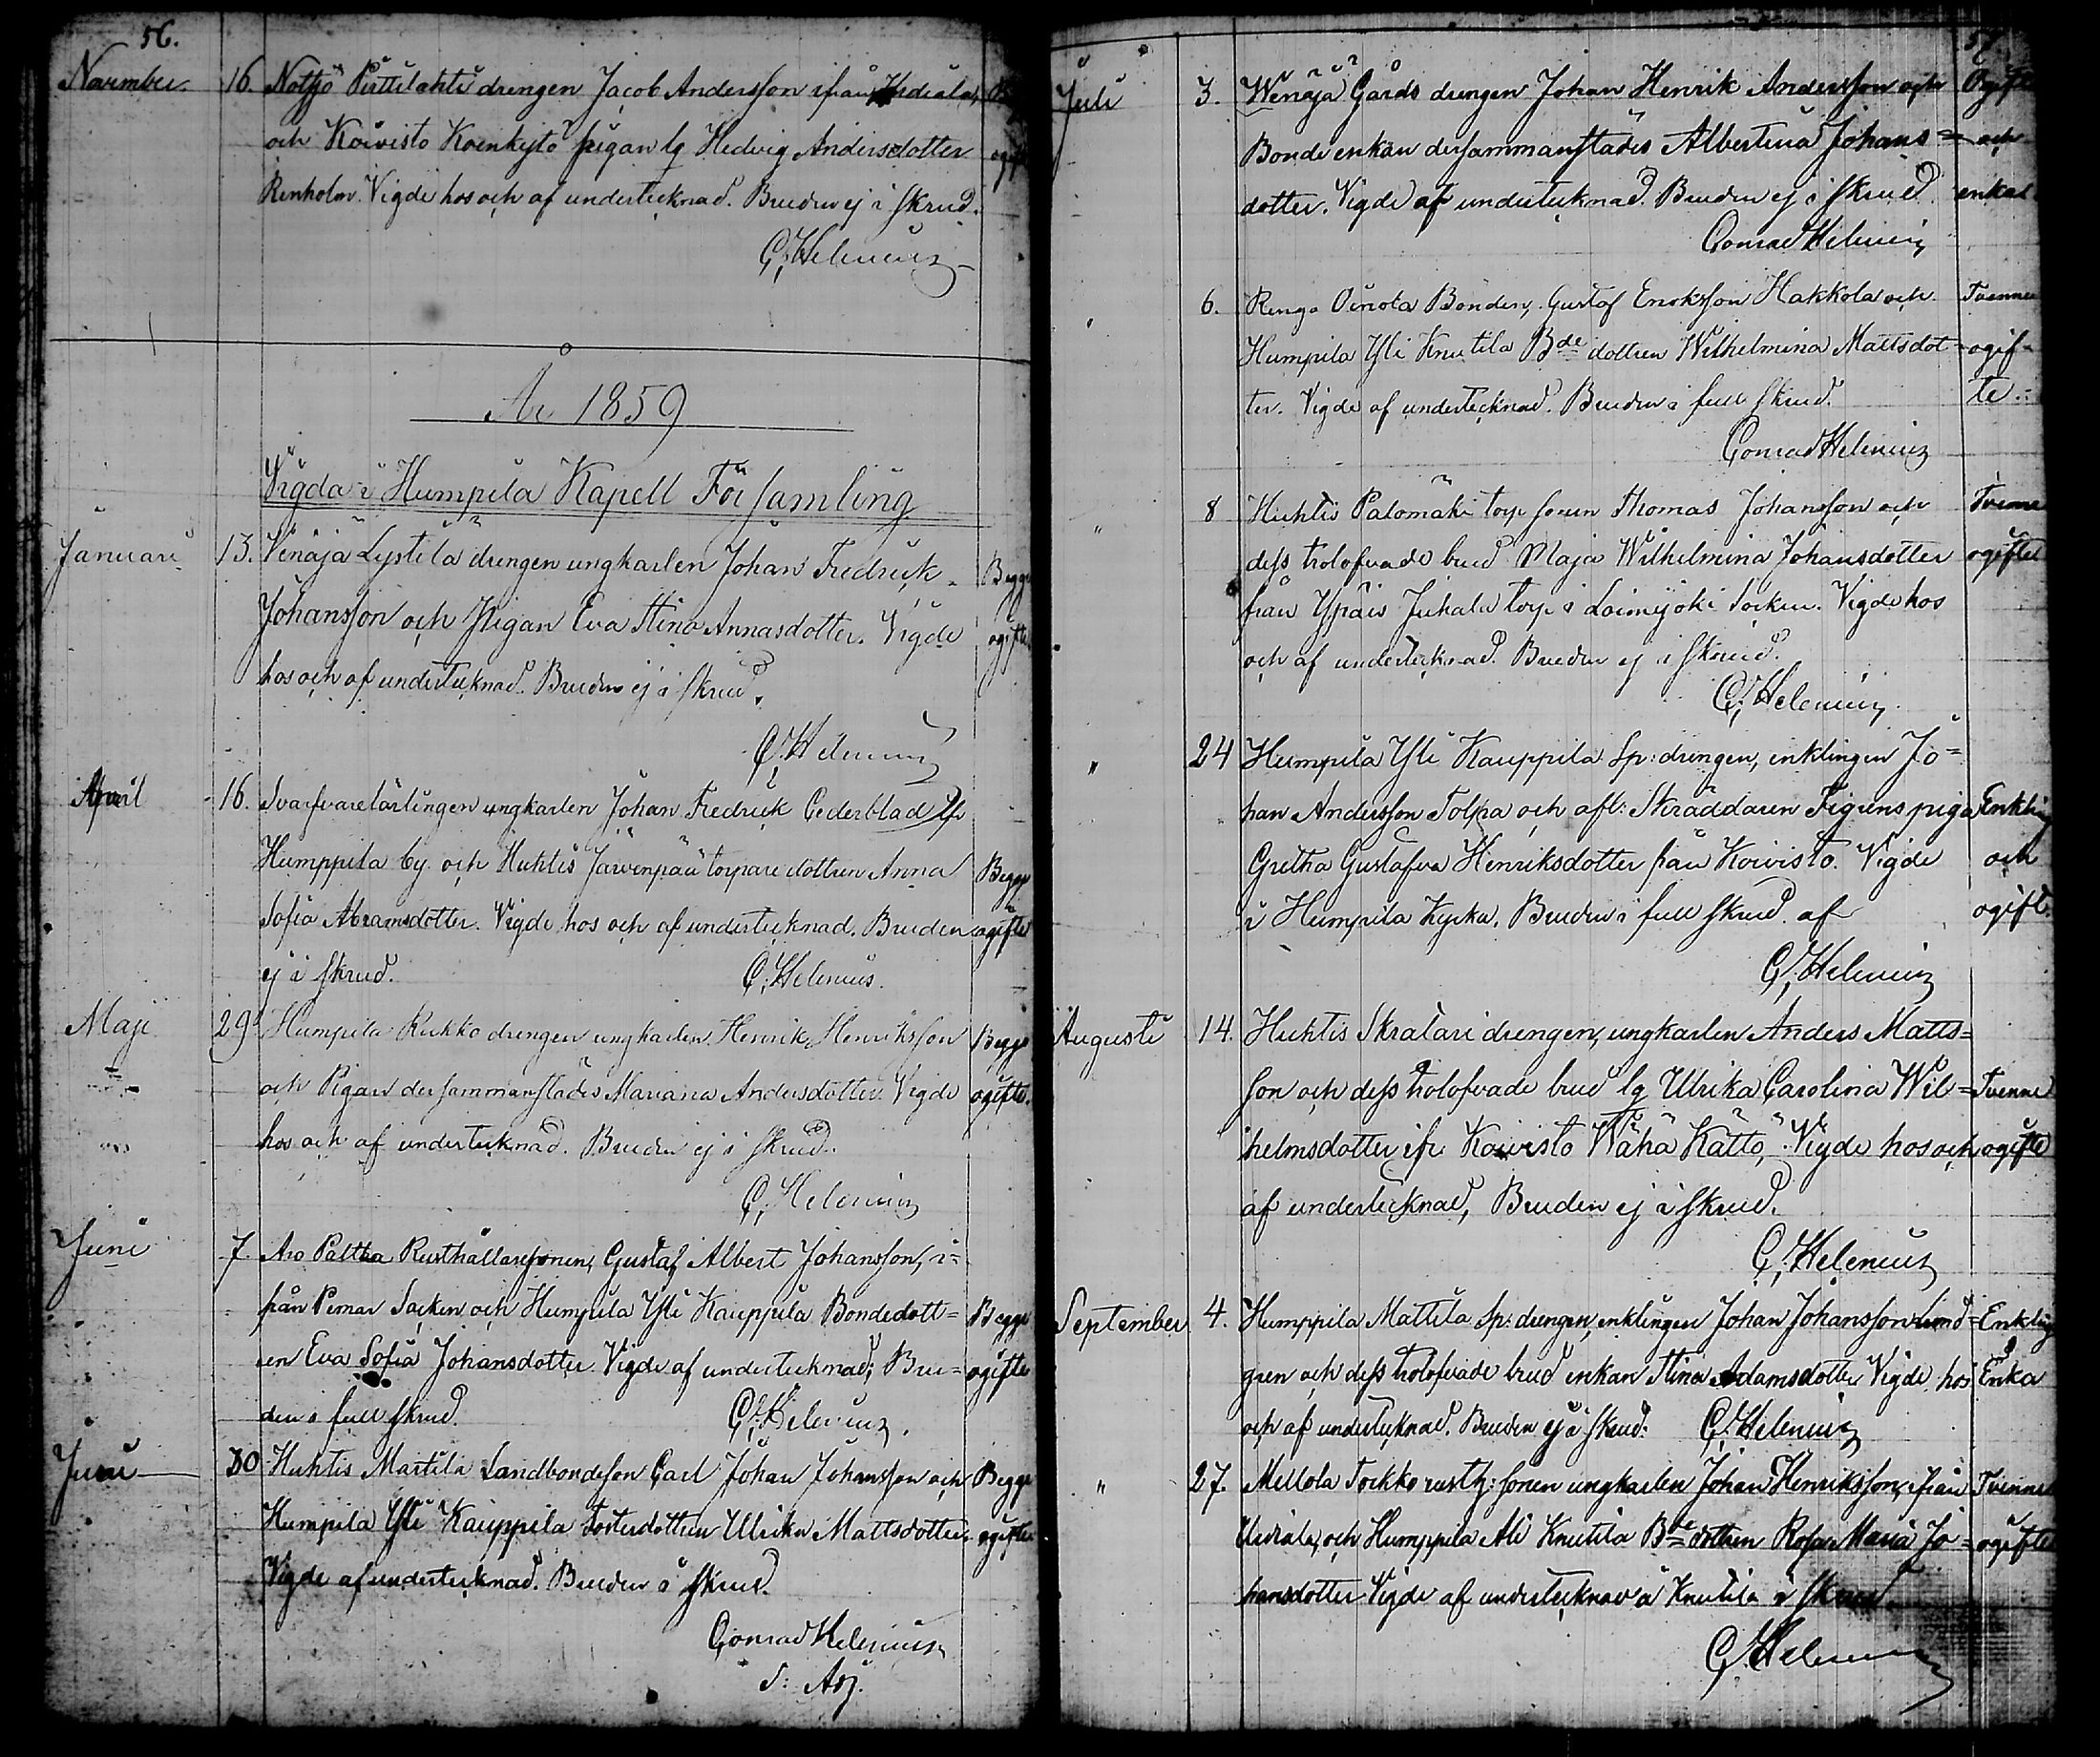 56.
November. 16. Notsjö Pirttilahti drengen Jacob Andersson ifrån Urdiala,
och Koivisto Koenkytö pigan lg Hedvig Andersdotter
Renholm. Vigde hos och af undertecknad. Bruden ej i skrud.
C. Helenius
År 1859
Vigda i Humpila Kapell Församling
Januari 13. Venäjä Lystilä drengen ungkarlen Johan Fredrick Begge
Johansson och Pigan Eva Stina Annasdotter. Vigde ogifte
hos och af undertecknad. Bruden ej i skrud.
C. Helenius
April 16. Svarfvarelärlingen ungkarlen Johan Fredrick Cederblad ifr
Humppila by och Huhtis Järvenpää torparedottren Anna Begge
Sofia Abramsdotter. Vigde hos och af undertecknad. Bruden ogifte
ej i skrud. C. Helenius.
Maji 29. Humpila Kukko drengen ungkarlen Henrik Henriksson Begge
och Pigan dersammanstädes Mariana Andersdotter. Vigde ogifte.
hos och af undertecknad. Bruden ej i skrud.
C. Helenius
Juni 7. Aro Paltta Rusthållaresonen, Gustaf Albert Johansson, i=
från Pemar Socken och Humpila Yli Kauppila Bondedott= Begge
ren Eva Sofia Johansdotter. Vigde af undertecknad; Bru= ogifte
den i full skrud. C. Helenius.
Juni 30 Huhtis Martila Landbondeson Carl Johan Johansson och Begge
Humpila Yli Kauppila fosterdottren Ulrika Mattsdotter. ogifte
Vigde af undertecknad. Bruden i skrud.
Conrad Helenius
s: Adj.
57
Juli 3. Wenäjä Gårds drengen Johan Henrik Andersson och Ogift
Bonde enkan dersammanstädes Albertina Johans= och
dotter. Vigde af undertecknad. Bruden ej i skrud. enka.
Conrad Helenius
" 6. Renga Oinola Bonden, Gustaf Eriksson Hakkola och Tvenne
Humpila Yli Knutila Bde dottren Wilhelmina Mattsdot= ogif=
ter. Vigde af undertecknad. Bruden i full skrud. te.
Conrad Helenius
" 8 Huhtis Palomäki torp sonen Thomas Johansson och Tvenne
dess trolofvade brud Maja Wilhelmina Johansdotter ogifte
från Ypäis Juhala torp i Loimijoki Socken. Vigde hos
och af undertecknad. Bruden ej i skrud.
C. Helenius
" 24 Humpila Yli Kauppila Sp: drengen, enklingen Jo=
han Andersson Tolpa och afl: Skräddaren Figrens piga Enkling
Gretha Gustafva Henriksdotter från Koivisto. Vigde och
i Humpila Kyrka. Bruden i full skrud. af ogift.
C. Helenius
Augusti 14. Huhtis Skratari drengen, ungkarlen Anders Matts=
son och dess trolofvade brud lg Ulrika Carolina Wil= Tvenne
helmsdotter ifr Koivisto Wähä Kättö, Vigde hos och ogifte
af undertecknad, Bruden ej i skrud.
C. Helenius
September 4. Humppila Mattila Sp: drengen, enklingen Johan Johansson Lind= Enkling
gren och dess trolofvade brud enkan Stina Adamsdotter Vigde hos Enka
och af undertecknad. Bruden ej i skrud: C. Helenius
" 27. Mellola Tockko rusth: sonen ungkarlen Johan Henriksson, ifrån Tvenne
Urdiala, och Humppila Ali Knutila Bde dottren Rosa Maria Jo= ogifte
hansdotter Vigde af undertecknad å Knutila i skrud
C. Helenius